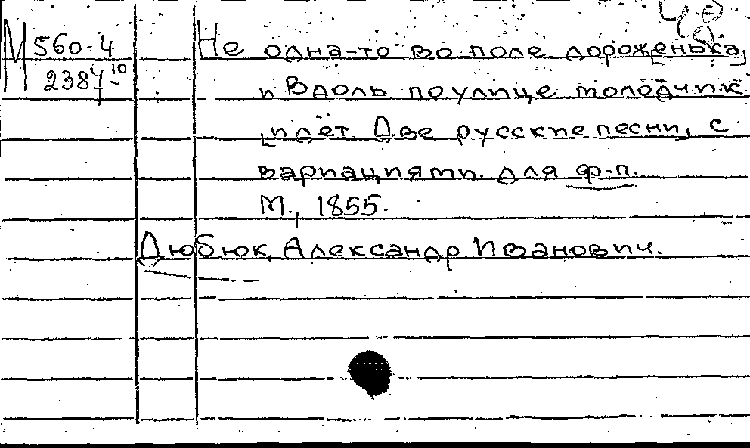 М 560-4 Не одна-то во поле дороженька,
2384-10 и Вдоль по улице молодчик
идёт. Две русские песни, с
вариациями. Для ф-п.
М., 1855.
Дюбюк, Александр Иванович.